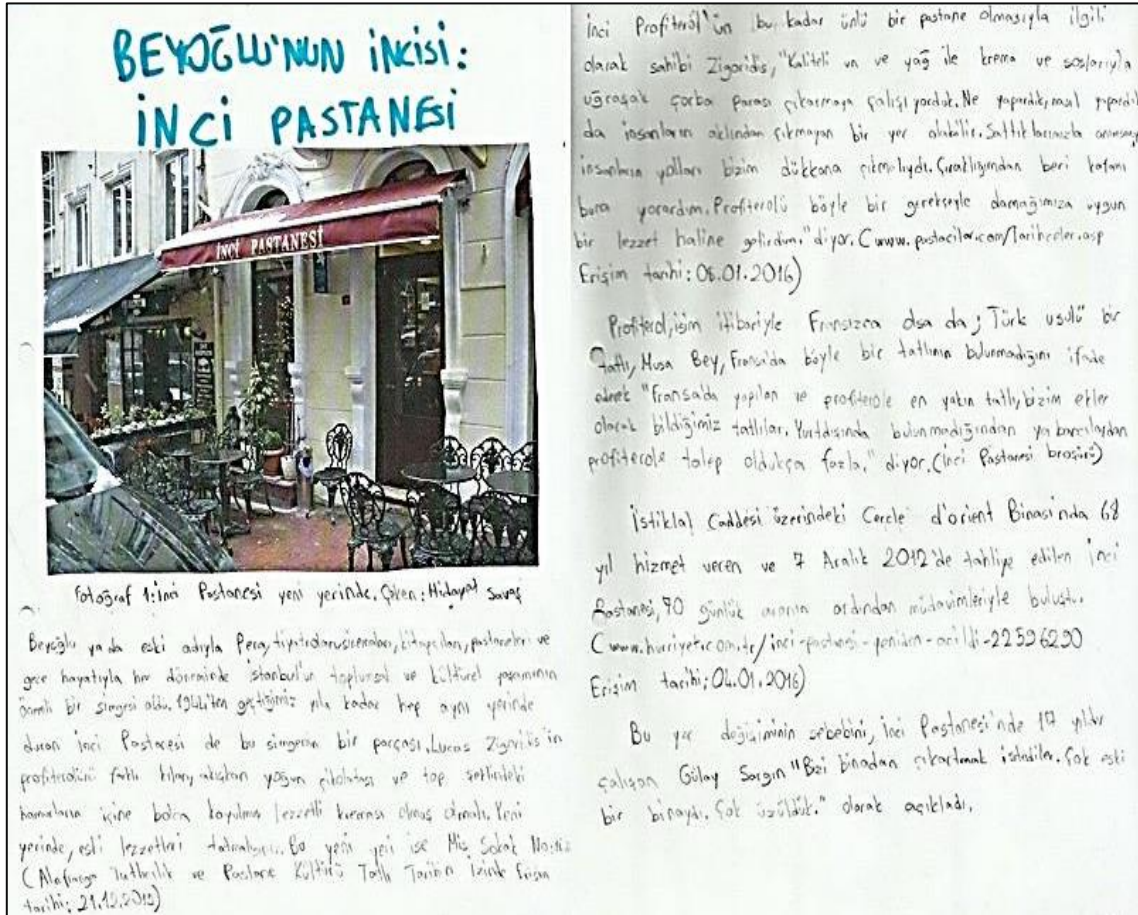 BEYOĞLU'NUN İNCİSİ:
İNCİ PASTANESİ
İNCİ PASTANESİ
Fotoğraf 1: İnci Pastanesi yeni yerinde. Çeken: Hidayat Savaş
Beyoğlu ya da eski adıyla Pera, kitapçıları, pastaneleri ve
gece hayatıyla her döneminde İstanbul'un toplumsal ve kültürel yaşamının
önemli bir simgesi oldu. geçtiğimiz yıla kadar hep aynı yerinde
duran İnci Pastanesi de bu simgenin bir parçası. Lucas Zigoridis'in
profiterolünü farklı kılan, akışkan yoğun çikolatası ve top şeklindeki
hamurların içine bolca koyulmuş lezzetli kreması olmuş olmalı. Yeni
yerinde, eski lezzetleri Bu yeni yeri ise Mis Sokak
( Alafranga Tatlıcılık ve Pastane Kültürü Tatlı Tarihin İzinde Erişim
tarihi: 21.12.2015)
İnci Profiterol'ün bu kadar ünlü bir pastane olmasıyla ilgili
olarak sahibi Zigoridis, "Kaliteli un ve yağ ile krema ve soslarıyla
uğraşak çorba parası çıkarmaya çalışıyorduk. Ne yapardık, nasıl yapardık
da insanların aklından çıkmayan bir yer olabilir. Sattıklarımızla
insanların yolları bizim dükkana çıkmalıydı. Çıraklığımdan beri kafamı
bura yorardım. Profiterolü böyle bir gerekseyle damağımıza uygun
bir lezzet haline getirdim." diyor. (www.pastacilar.com/Tarihceler.asp
Erişim tarihi: 06.01.2016)
Profiterol, isim itibariyle Fransızca olsa da; Türk usulü bir
tatlı, Musa Bey, Fransa'da böyle bir tatlının bulunmadığını ifade
ederek "Fransa'da yapılan ve profiterole en yakın tatlı, bizim ekler
olarak bildiğimiz tatlılar. Yurtdışında bulunmadığından yabancılardan
profiterole talep oldukça fazla." diyor. (İnci Pastanesi broşürü)
İstiklal Caddesi üzerindeki Cercle d'orient Binası'nda 68
yıl hizmet veren ve 7 Aralık 2012'de tahliye edilen İnci
Pastanesi, 90 günlük aranın ardından müdavimleriyle buluştu.
(www.hurriyet.com.tr/inci-pastanesi-yeniden-acildi-22596290
Erişim tarihi: 04.01.2016)
Bu yer değişiminin sebebini, İnci Pastanesi'nde 17 yıldır
çalışan Gülay Sargın "Bizi binadan çıkartmak istediler. Çok eski
bir binaydı. Çok üzüldük." olarak açıkladı.